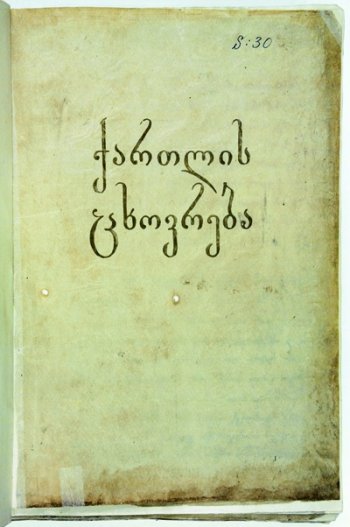 S:30
ქართლის
ცხოვრება